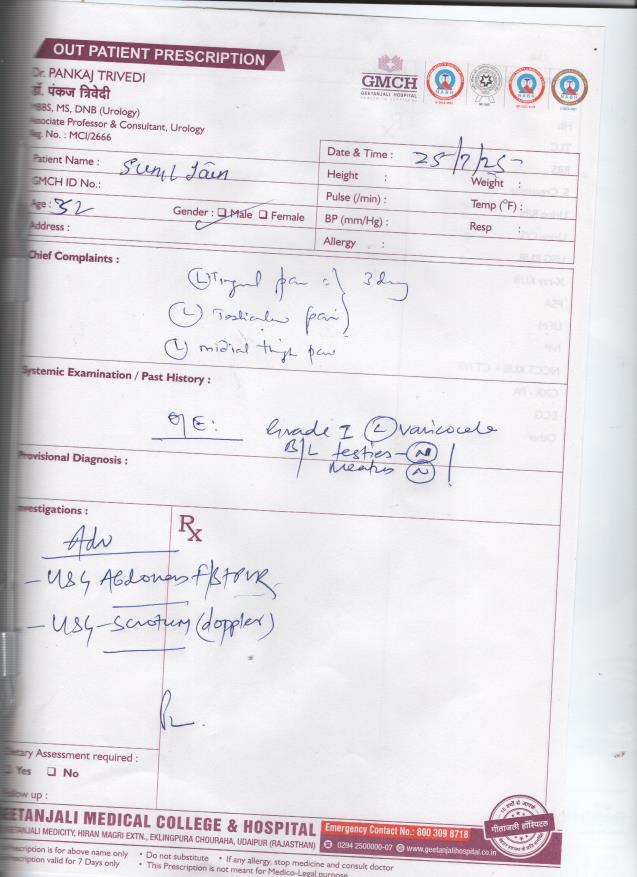 OUT PATIENT PRESCRIPTION
Dr. PANKAJ TRIVEDI
डॉ. पंकज त्रिवेदी
MBBS, MS, DNB (Urology)
Associate Professor & Consultant, Urology
Reg. No. : MCI/2666
GMCH
GEETANJALI HOSPITAL
Patient Name : Sunil Jain
GMCH ID No.:
Age : 32 Gender : ☐ Male ☐ Female
Address :
Date & Time : 25/7/25
Height : Weight :
Pulse (/min) : Temp (°F) :
BP (mm/Hg) : Resp :
Allergy :
Chief Complaints :
(L) Inguinal pain 3 day
(L) Testicular pain
(L) medial thigh pain
Systemic Examination / Past History :
O/E: Grade I (L) varicocele
B/L testies - (N)
Meatus (N)
Provisional Diagnosis :
Investigations :
Rx
Adv
- USG Abdomen
- USG - Scrotum (doppler)
Dietary Assessment required :
☐ Yes ☐ No
Follow up :
GEETANJALI MEDICAL COLLEGE & HOSPITAL
GEETANJALI MEDICITY, HIRAN MAGRI EXTN., EKLINGPURA CHOURAHA, UDAIPUR (RAJASTHAN)
Emergency Contact No.: 800 309 8718
0294 2500000-07 www.geetanjalihospital.co.in
गीतांजली हॉस्पिटल
Prescription is for above name only • Do not substitute • If any allergy, stop medicine and consult doctor
Prescription valid for 7 Days only • This Prescription is not meant for Medico-Legal purpose